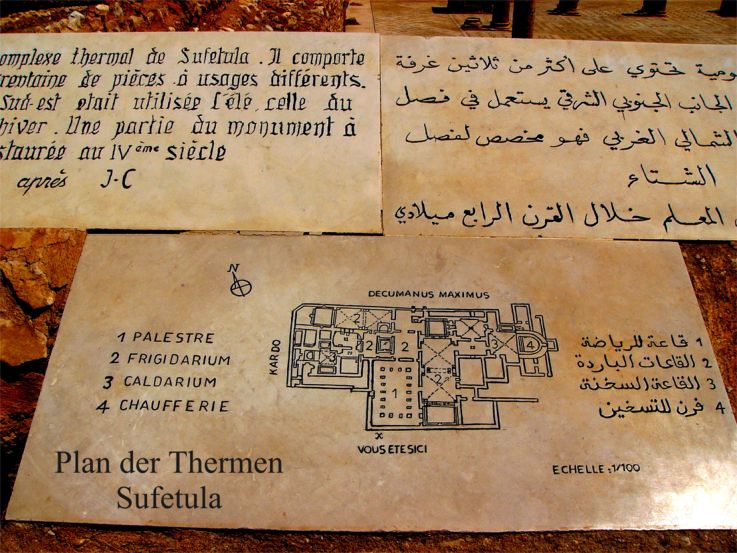 complexe thermal de Sufetula. Il comporte
trentaine de pièces à usages différents.
Sud-est etait utilisée l'été, celle du
hiver. Une partie du monument à
staurée au IVème siècle
après J-C
ومية تحتوي على أكثر من ثلاثين غرفة
الجانب الجنوبي الشرقي يستعمل في فصل
الشمالي الغربي فهو مخصص لفصل
الشتاء
المعلم خلال القرن الرابع ميلادي
N
DECUMANUS MAXIMUS
KARDO
1 PALESTRE
2 FRIGIDARIUM
3 CALDARIUM
4 CHAUFFERIE
2
2
2
2
2
1
3
4
x
VOUS ETES ICI
1 قاعة للرياضة
2 القاعات الباردة
3 القاعة السخنة
4 فرن للتسخين
ECHELLE : 1/100
Plan der Thermen
Sufetula